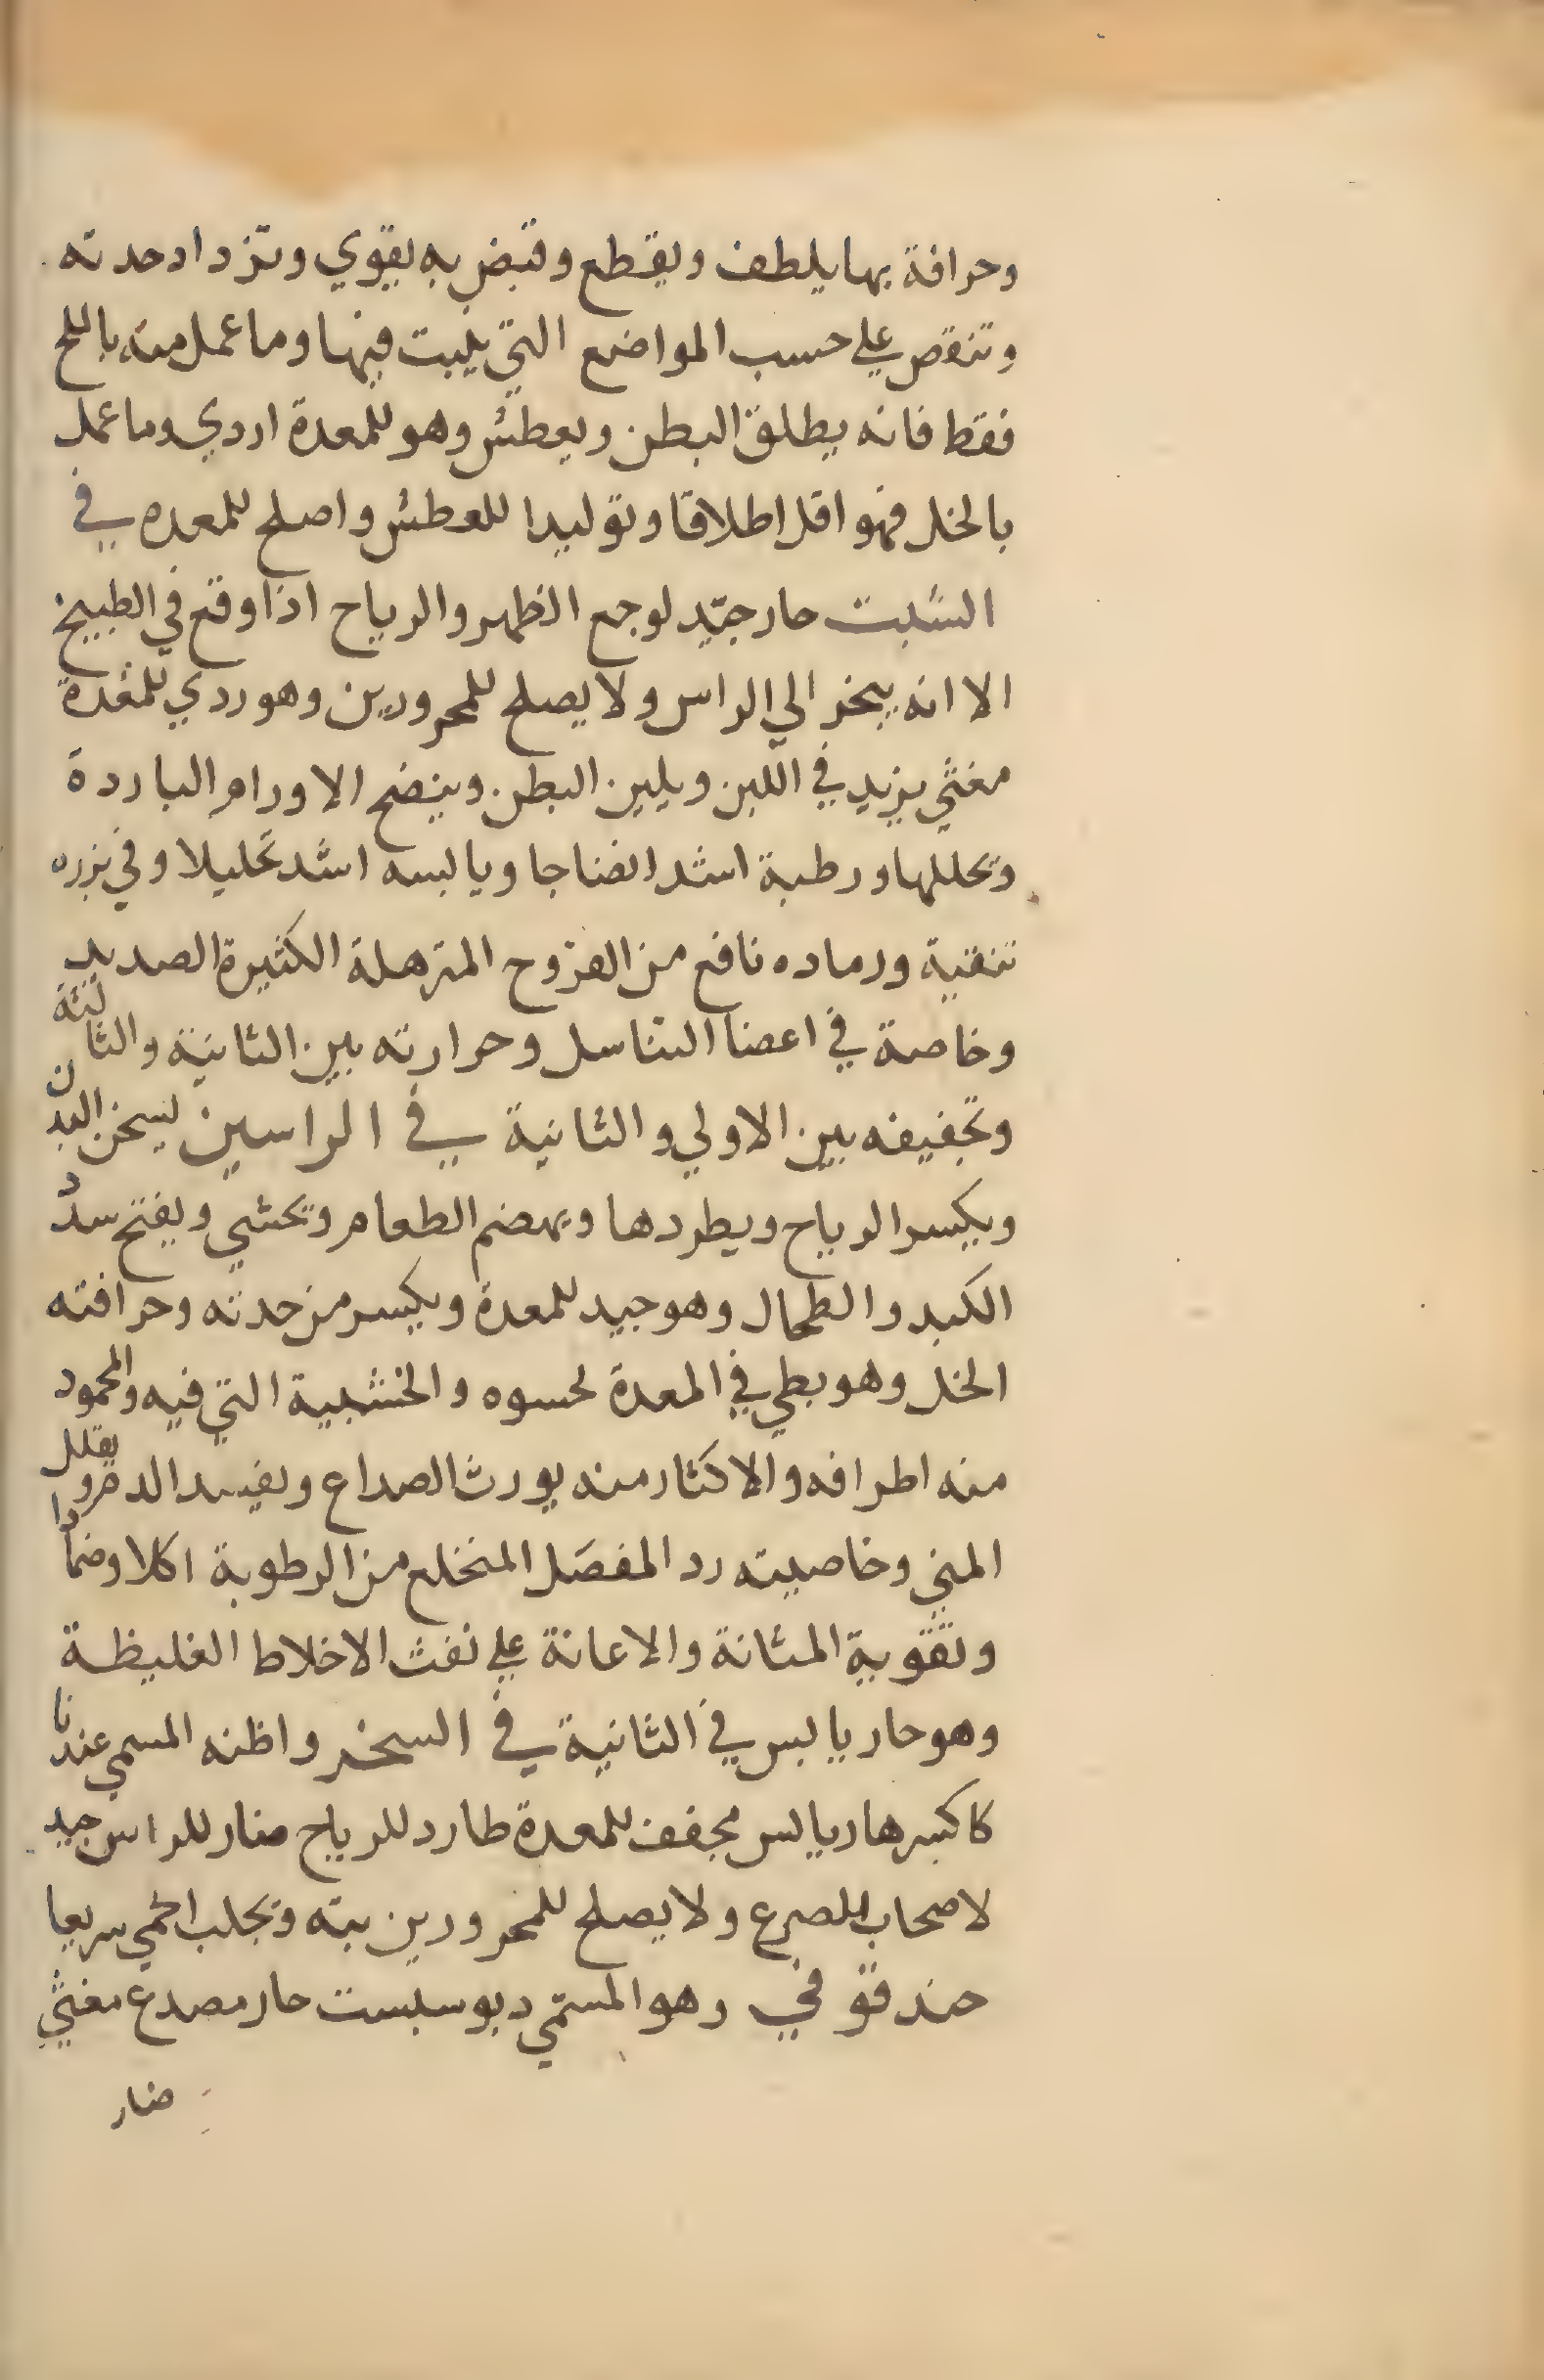 وحرافة بها يلطف ويقطع وقبض به يقوي وتزداد حدته
وتنقص علي حسب المواضع التي ينبت فيها وما عمل منه بالملح
فقط فانه يطلق البطن ويعطش وهو للمعدة اردي وما عمل
بالخل فهو اقل اطلاقا وتوليدا للعطش واصلح للمعده في
الشبت حار جيد لوجع الظهر والرياح اذا وقع في الطبيخ
الا انه يبخر الي الراس ولا يصلح للمحرورين وهو ردي للمعدة
مغثي يزيد في اللبن ويلين البطن وينضج الاورام الباردة
وتحللها ورطبة اشد انضاجا ويابسه اشد تحليلا وفي بزره
تنقية ورماده نافع من القروح المترهلة الكثيرة الصديد
وخاصة في اعضا التناسل وحرارته بين الثانية والثالثة
وتجفيفه بين الاولي والثانية في الراسين يسخن البدن
ويكسر الرياح ويطردها ويهضم الطعام وتحشي ويفتح سدد
الكبد والطحال وهو جيد للمعدة ويكسر من حدته وحرافته
الخل وهو بطي في المعدة لحسوه والخشبية التي فيه والمحمود
منه اطرافه والاكثار منه يورث الصداع ويفسد الدم ويقلل
المني وخاصيته رد المفصل المنخلع من الرطوبة اكلا وضمادا
وتقوية المثانة والاعانة علي نفث الاخلاط الغليظة
وهو حار يابس في الثانية في السخبر واظنه المسمي عندنا
كاكبرها ريابس مجفف للمعدة طارد للرياح ضار للراس جيد
لاصحاب للصرع ولا يصلح للمحرورين بته وتجلب الحمي سريعا
حندقوقي وهو المسمي ديوسبست حار مصدع مغثي
ضار